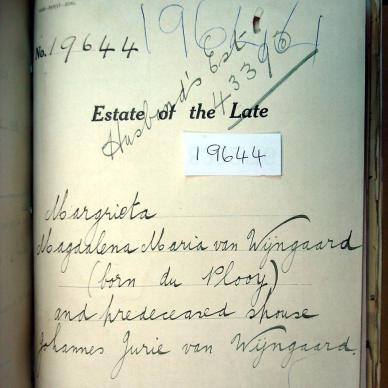 No. 19644
19644
Husband's Est:
Estate of the Late
19644
Margrieta
Magdalena Maria van Wijngaard
(born du Plooy)
and predeceased spouse
Johannes Jurie van Wijngaard.